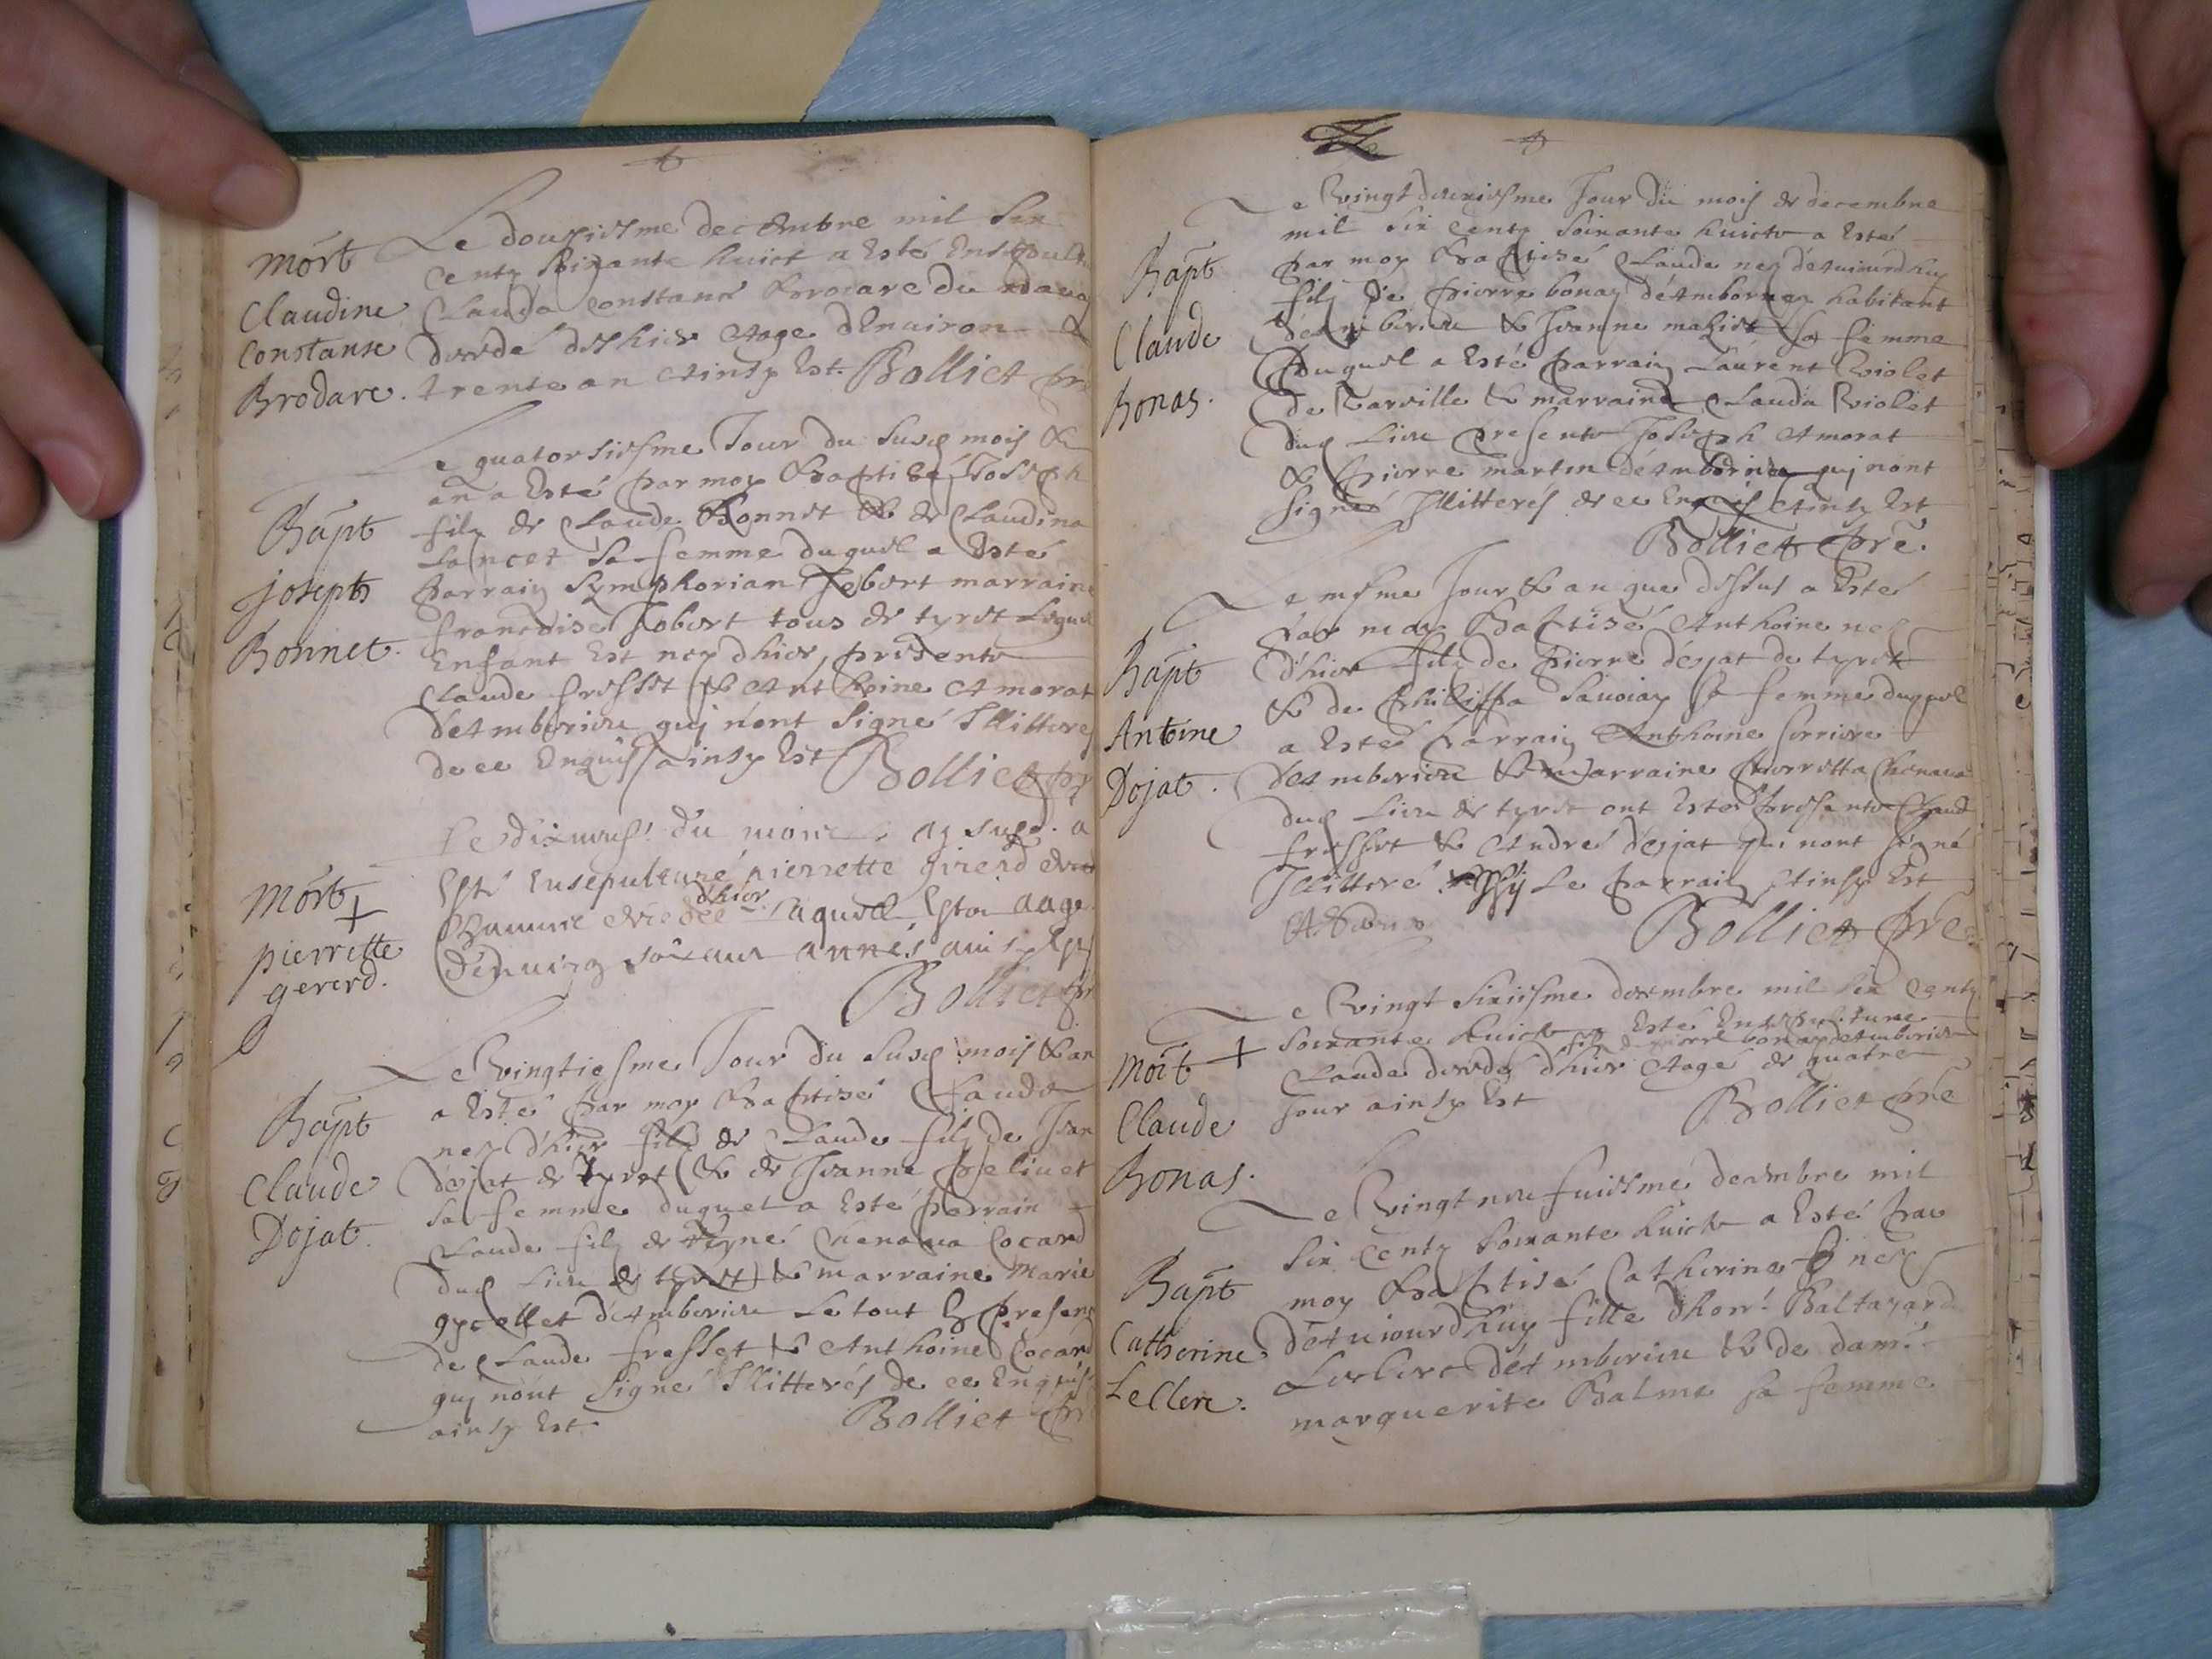 mort
Claudine
Constanse
Brodare.
Le dousiesme decembre mil six
centz soixante huict a esté
Clauda constance Brodare du
decedé dethier aage denuiron
trente an ainsy est. Bolliet
Bapt
joseph
Bonnet.
Le quatorsiesme Jour du susd mois &
an a esté par moy Baptisé Joseph
filz de Claude Bonnet & de Claudina
sa femme duquel a esté
parrain Symphorian Jobert marraine
francoise Jobert tous de tyret lequel
Enfant est ney dhier, presents
Claude fresset & Anthoine Amorat
d'Amberieu quj nont signé Illitteres
de ce Enquis ainsy est Bolliet
mort +
pierrette
gererd.
Le dixneuf du mois
Esté Ensepulturé pierrette girerd
dhier
laquelle estoi aage
années ainsy est
Bolliet
Bapt
Claude
Dojat.
Le vingtiesme Jour du susd mois & an
a Esté par moy Baptisé Claude
ney dhier filz de Claude filz de Jean
dojat de tyret & de Jeanne pelluet
sa femme duquel a esté parrain
Claude filz de Cocard
dud lieu de tyret & marraine Marie
d'Amberieu le tout presens
de Claude fresset & Anthoine Cocard
quj nont signé Illitterés de ce Enquis
ainsy Est. Bolliet
Bapt
Claude
Bonas.
Le vingt deuxiesme Jour du mois de decembre
mil six centz soixante huict a Esté
par moy Baptisé Claude ney d'Aujourdhuy
filz de pierre bonaz d'Ambornay habitant
d'Amberieu & Jeanne sa femme
duquel a Esté parrain Laurent Violet
de Varville & marraine Clauda Violet
dud Lieu presents Joseph Amorat
& pierre martin d'Amberieu quj nont
signés Illitterés de ce Enquis Ainsy Est
Bolliet pre.
Bapt
Antoine
Dojat.
Le mesme Jour & an que dessus a Esté
par moy Baptisé Anthoine ney
d'hier filz de pierre dojat de tyret
& de philippa sauoiay sa femme duquel
a Esté parrain Anthoine ferriere
d'Amberieu & marraine pierrotta
dud Lieu de tyret ont Estés presents Claude
fresset & André dojat qui nont signé
Illitteré le parrain Ainsy Est
Bolliet pre
Mort +
Claude
Bonas.
Le vingt sixiesme decembre mil six centz
soixante huict a Esté Ensepulturé
filz de pierre bonaz d'Amberieu
Claude decedez d'hier Aagé de quatre
jour ainsy Est Bolliet pre
Bapt
Catherine
LeClerc.
Le vingt neufuiesme decembre mil
six centz soixante huict a Esté par
moy Baptisé Catherine ney
d'Aujourdhuy fille d'hon. Baltazard
Leclerc d'Amberieu & de dam.
marguerite Balme sa femme